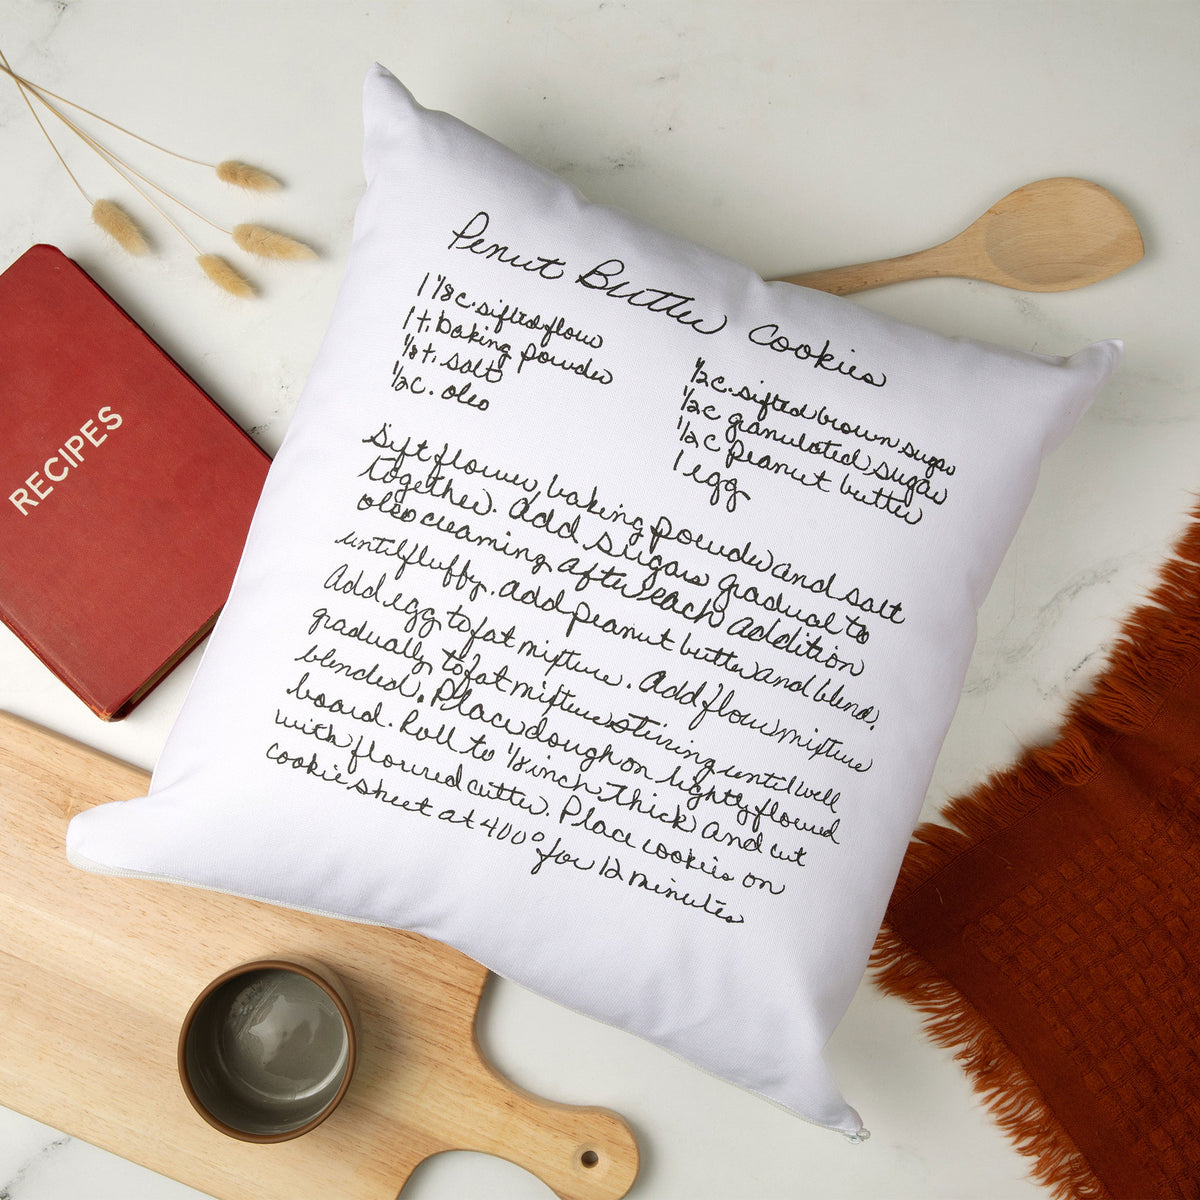 RECIPES
Penut Butter Cookies
1 1/8 c. sifted flour
1 t. baking powder
1/8 t. salt
1/2 c. oleo
1/2 c. sifted brown sugar
1/2 c granulated sugar
1/2 c peanut butter
1 egg
Sift flour, baking powder and salt
together. Add sugars gradual to
oleo creaming after each addition
until fluffy. Add peanut butter and blend.
Add egg to fat mixture. Add flour mixture
gradually to fat mixture stirring until well
blended. Place dough on lightly floured
board. Roll to 1/8 inch thick and cut
with floured cutter. Place cookies on
cookie sheet at 400° for 12 minutes